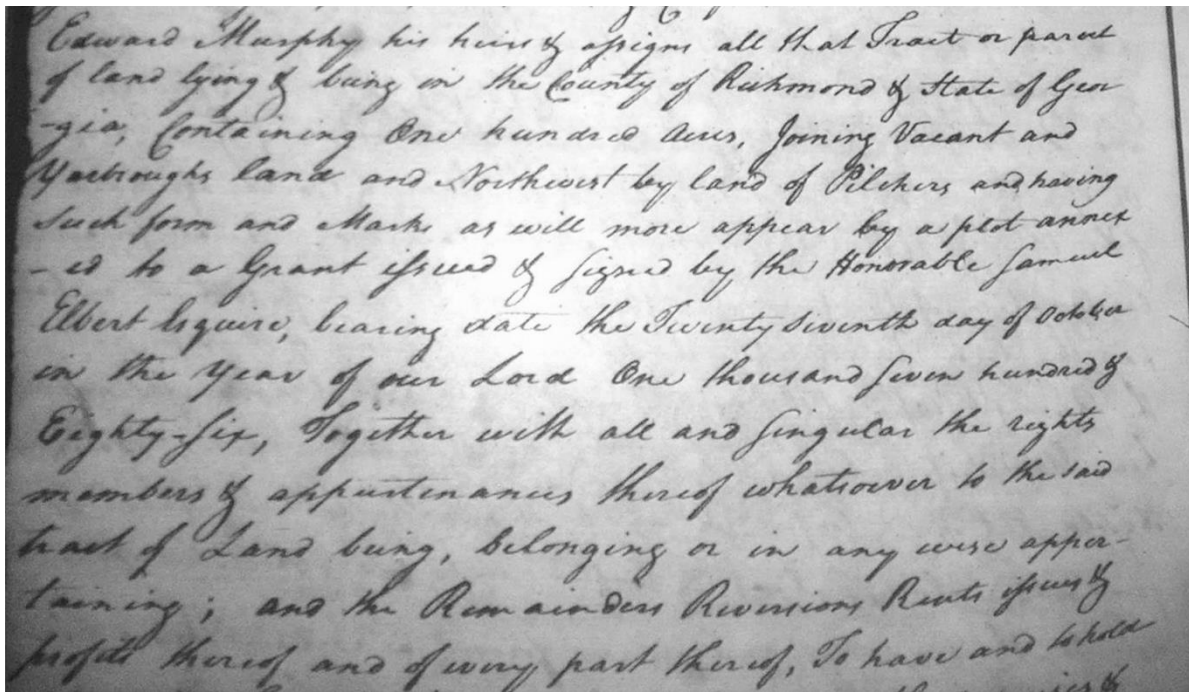 Edward Murphy his heirs & assigns all that Tract or parcel
of land lying & being in the County of Richmond & State of Geor
-gia, Containing One hundred Acres, Joining Vacant and
Yarbroughs land and Northwest by land of Pilchers and having
such form and Marks as will more appear by a plot annex
-ed to a Grant issued & signed by the Honorable Samuel
Elbert Esquire, bearing date the Twenty Seventh day of October
in the Year of our Lord One thousand Seven hundred &
Eighty-Six, Together with all and Singular the rights
members & appurtenances thereof whatsoever to the said
tract of Land being, belonging or in any wise apper-
taining; and the Remainders Reversions Rents issues &
profits thereof and of every part thereof, To have and to hold